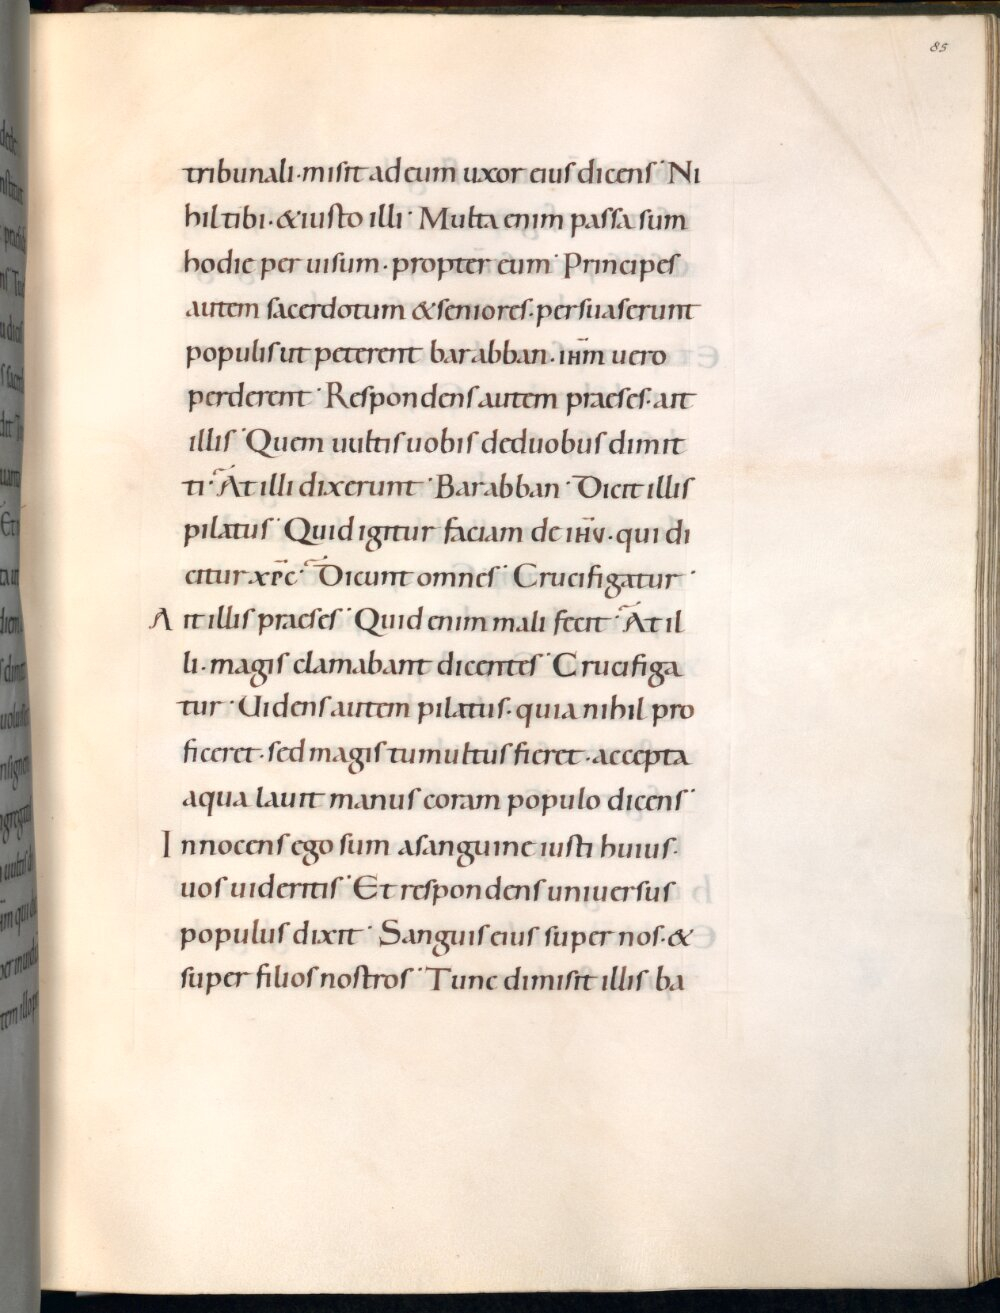 85
tribunali·misit ad eum uxor eius dicens· Ni
hil tibi·&iusto illi· Multa enim passa sum
hodie per uisum·propter eum· Principes
autem sacerdotum &seniores·persuaserunt
populis ut peterent barabban·ihm̄ uero
perderent· Respondens autem praeses·ait
illis· Quem uultis uobis deduobus dimit
ti· At illi dixerunt· Barabban· Dicit illis
pilatus· Quid igitur faciam de ihū·qui di
citur xp̄c· Dicunt omnes· Crucifigatur·
A it illis praeses· Quid enim mali fecit· At il
li·magis clamabant dicentes· Crucifiga
tur· Uidens autem pilatus·quia nihil pro
ficeret·sed magis tumultus fieret·accepta
aqua lauit manus coram populo dicens·
I nnocens ego sum asanguine iusti huius·
uos uideritis· Et respondens uniuersus
populus dixit· Sanguis eius super nos·&
super filios nostros· Tunc dimisit illis ba